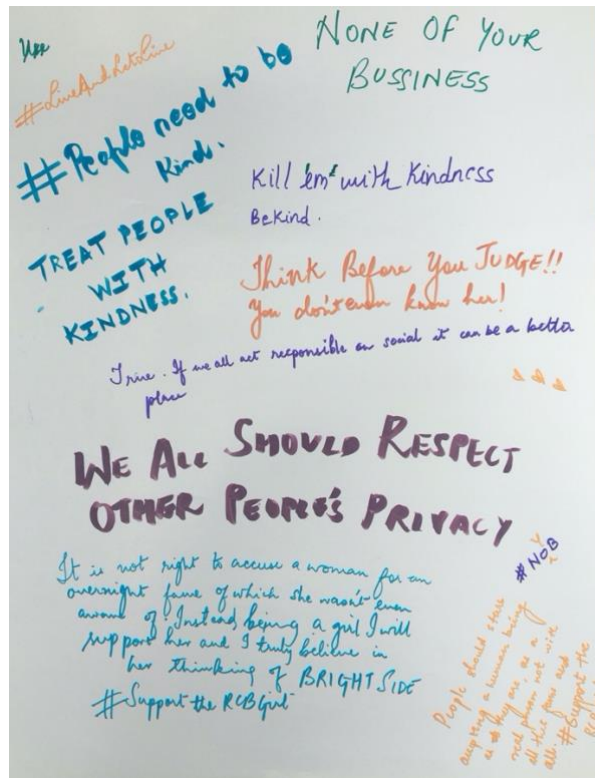 NONE OF YOUR
BUSSINESS
#LiveAndLetLive
#People need to be
Kind.
Kill 'em' with Kindness
Be Kind.
TREAT PEOPLE
WITH
KINDNESS.
Think Before You JUDGE!!
You don't even know her!
True. If we all act responsible on social it can be a better
place
WE ALL SHOULD RESPECT
OTHER PEOPLE'S PRIVACY
#NOB
It is not right to accuse a woman for an
overnight fame of which she wasn't even
aware of. Instead being a girl I will
support her and I truly believe in
her thinking of BRIGHT SIDE
#Support the RCBGirl
People should start
accepting a human being
as they are, as a
real person not with
all this fame and
all. #Support the